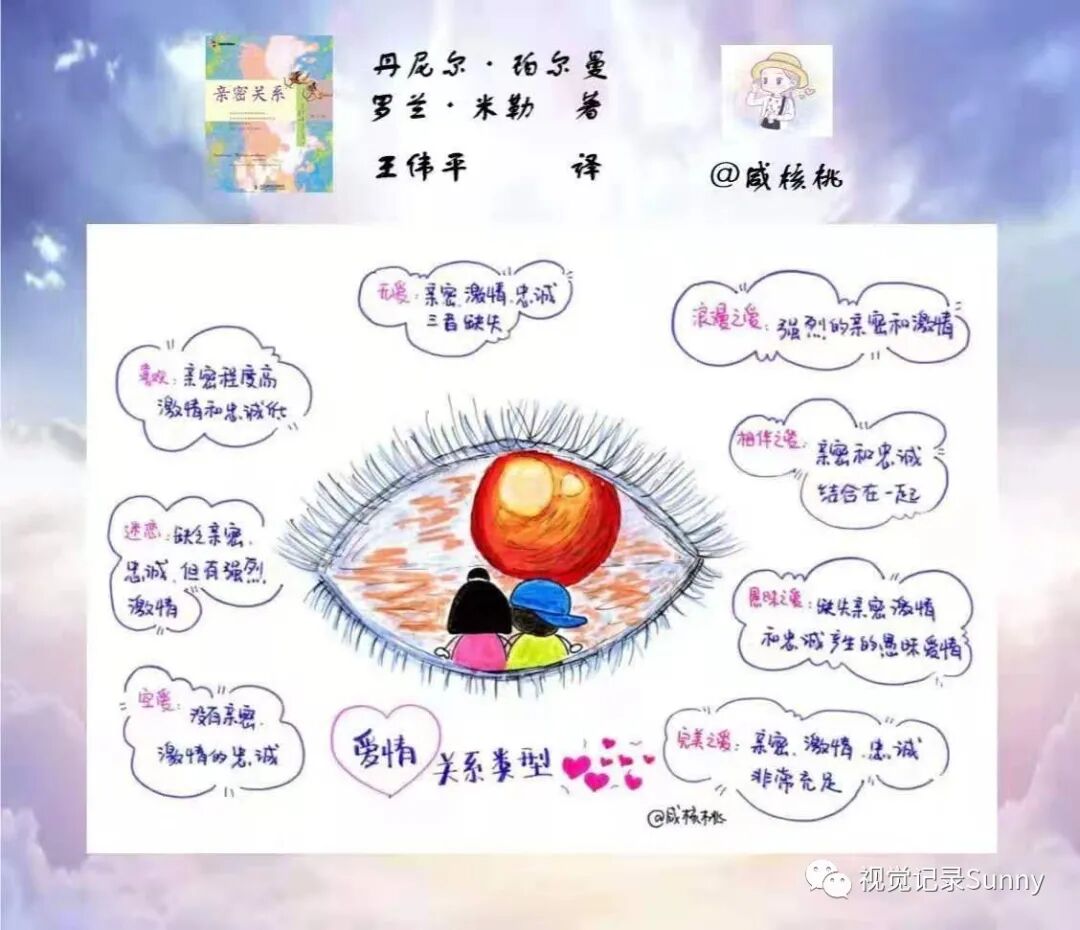 亲密关系
丹尼尔·珀尔曼
罗兰·米勒 著
王伟平 译
@咸核桃
无爱:亲密、激情、忠诚
三者缺失
浪漫之爱:强烈的亲密和激情
喜欢:亲密程度高
激情和忠诚低
相伴之爱:亲密和忠诚
结合在一起
迷恋:缺乏亲密、
忠诚、但有强烈
激情
愚昧之爱:缺失亲密激情
和忠诚产生的愚昧爱情
空爱:没有亲密、
激情的忠诚
完美之爱:亲密、激情、忠诚
非常充足
爱情 关系类型
@咸核桃
视觉记录Sunny